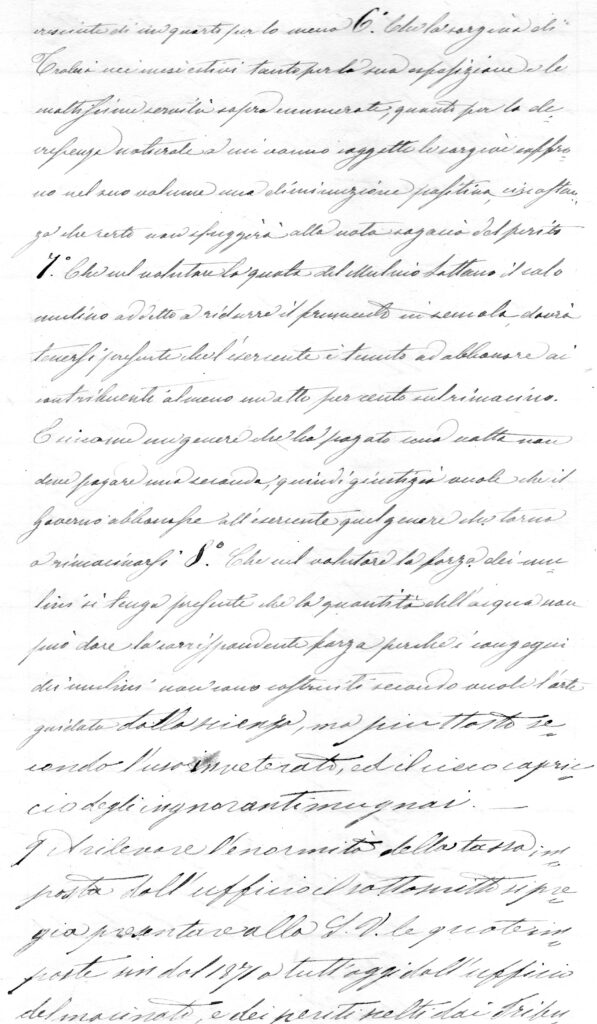 crescente di un quarto per lo meno 6.° Che la sorgiva di
Trabia nei mesi estivi tanto per la sua esposizione e le
moltissime servitù sopra enumerate, quanto per la de-
crescenza naturale a cui vanno soggette le sorgive soffro-
no nel suo volume una diminuzione positiva, circostan-
za che certo non sfuggirà alla nota sagacia del perito
7.° Che nel valutare la quota del Mulino Sottano il solo
mulino addetto a ridurre il frumento in semola, dovrà
tenersi presente che l'esercente è tenuto ad abbonare ai
contribuenti almeno un otto per cento sul rimacino.
E siccome un genere che ha pagato una volta non
deve pagare una seconda, quindi giustizia vuole che il
Governo abbonasse all'esercente quel genere che torna
a rimacinarsi 8.° Che nel valutare la forza dei mu-
lini si tenga presente che la quantità dell'acqua non
può dare la corrispondente forza perchè i congegni
dei mulini non sono costruiti secondo vuole l'arte
guidata dalla scienza, ma piuttosto se-
condo l'uso inveterato, ed il cieco capric-
cio degli ingnoranti mugnai. —
9 A rilevare l'enormità della tassa im-
posta dall'ufficio il sottoscritto si pre-
gia presentare alla S. V. le quote im-
poste sin dal 1871 a tutt'oggi dall'ufficio
del macinato, e dei periti scelti dai Tribu